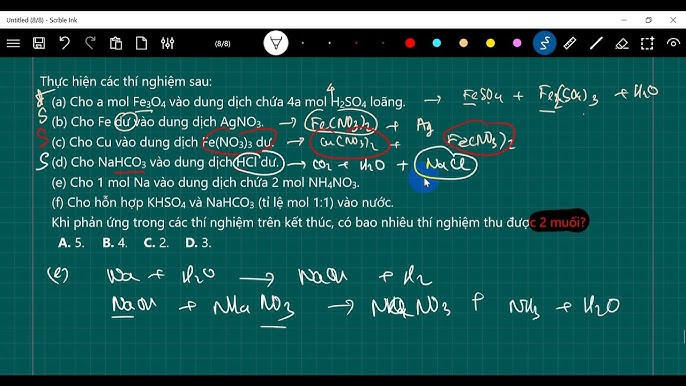 Untitled (8/8) - Scrble Ink
(8/8)
Thực hiện các thí nghiệm sau:
(a) Cho a mol Fe3O4 vào dung dịch chứa 4a mol H2SO4 loãng. → FeSO4 + Fe2(SO4)3 + H2O
4
S (b) Cho Fe dư vào dung dịch AgNO3. → Fe(NO3)2 + Ag
S (c) Cho Cu vào dung dịch Fe(NO3)3 dư. → Cu(NO3)2 + Fe(NO3)2
S (d) Cho NaHCO3 vào dung dịch HCl dư. → CO2 + H2O + NaCl
(e) Cho 1 mol Na vào dung dịch chứa 2 mol NH4NO3.
(f) Cho hỗn hợp KHSO4 và NaHCO3 (tỉ lệ mol 1:1) vào nước.
Khi phản ứng trong các thí nghiệm trên kết thúc, có bao nhiêu thí nghiệm thu được 2 muối?
A. 5. B. 4. C. 2. D. 3.
(e) Na + H2O → NaOH + H2
NaOH + NH4NO3 → NaNO3 + NH3 + H2O